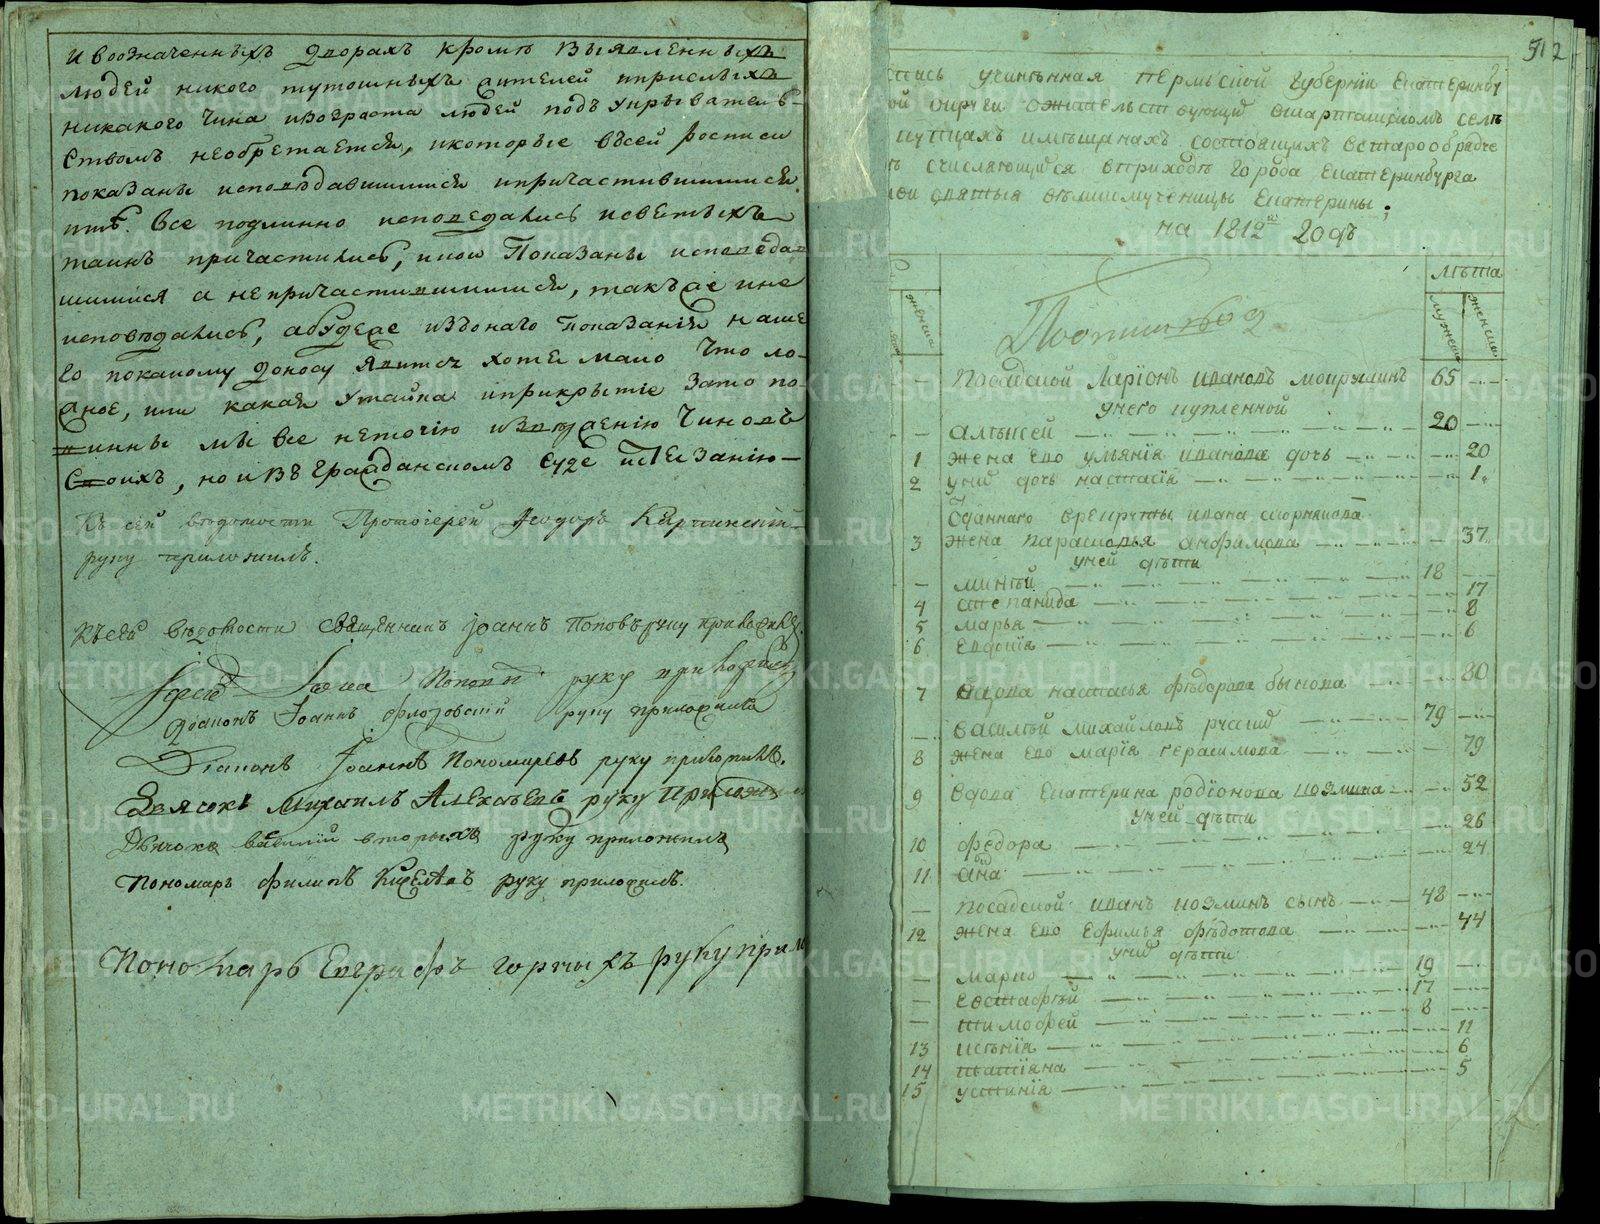 ивоозначенныхъ дворахъ кромѣ выявленныхъ
людей никого тутошныхъ жителей иприслыхъ
никакого чина ивозраста людей подъ укрыватель-
ствомъ необретается, икоторые въсей росписи
показаны исповѣдавшимися ипричастившимися
тѣ все подлинно исповедались исветыхъ
таинъ причастились, икои показаны исповеда
вшимися а непричастившимися, такъже ине
исповѣдались, абудеже изонаго показанїя наше
го покакому доносу явится хотя мало что ло-
жное, или какая утайка иприкрытїе зато по
винны мы все неточїю извѣржению чиновъ
своихъ, но ивъ гражданскомъ суде истезанїю-
Къ сей ведомости Протоїерей Ѳеодоръ Карпинский
руку приложилъ.
Къ сей вѣдомости священникъ Іоаннъ Поповъ руку приложилъ.
Іерей Іоанн Поповъ руку приложилъ
дїаконъ Іоаннъ Флоровский руку приложилъ
Дїаконъ Іоаннъ Пономаревъ руку приложилъ.
Дьячокъ Михаилъ Алексѣевъ руку приложилъ
Дьячокъ василий вторыхъ руку приложилъ
Пономарь Филипъ Киселевъ руку приложилъ.
Пономарь Евграфъ горныхъ руку прило
512
спись учиненная пермьской губернїи Екатеринбу
ой округи ожительствующих вшарташскомъ селѣ
купцахъ имѣщанахъ состоящихъ встарообрядче
счисляющихся вприходѣ города Екатеринбурга
святыя великомученицы Екатерины;
на 1812й годъ
лѣта
мужеска
женска
Посадской Ларїонъ ивановъ мокрушинъ 65
унего купленной
алѣксей 20
1 жена ево ульянїя иванова дочь 20
2 уних дочь настасїя 1
отданнаго врекруты ивана скорнякова
3 жена парасковья анфимова 37
уней дѣти
микѣй 18
4 степанида 17
5 марья 8
6 евдокїя 6
7 вдова настасья фѣдорова быкова 80
василѣй михайловъ 79
8 жена ево марїя герасимова 79
9 вдова Екатерина родїонова козмина 52
уней дѣти
10 федора 26
11 ана 24
посадской иванъ козминъ сынъ 48
12 жена ево Ефимья фѣдотова 44
уних дѣти
марко 19
Евстафѣй 17
тимофей 8
13 ксѣнїя 11
14 татїяна 6
15 устинїя 5
METRIKI.GASO-URAL.RU